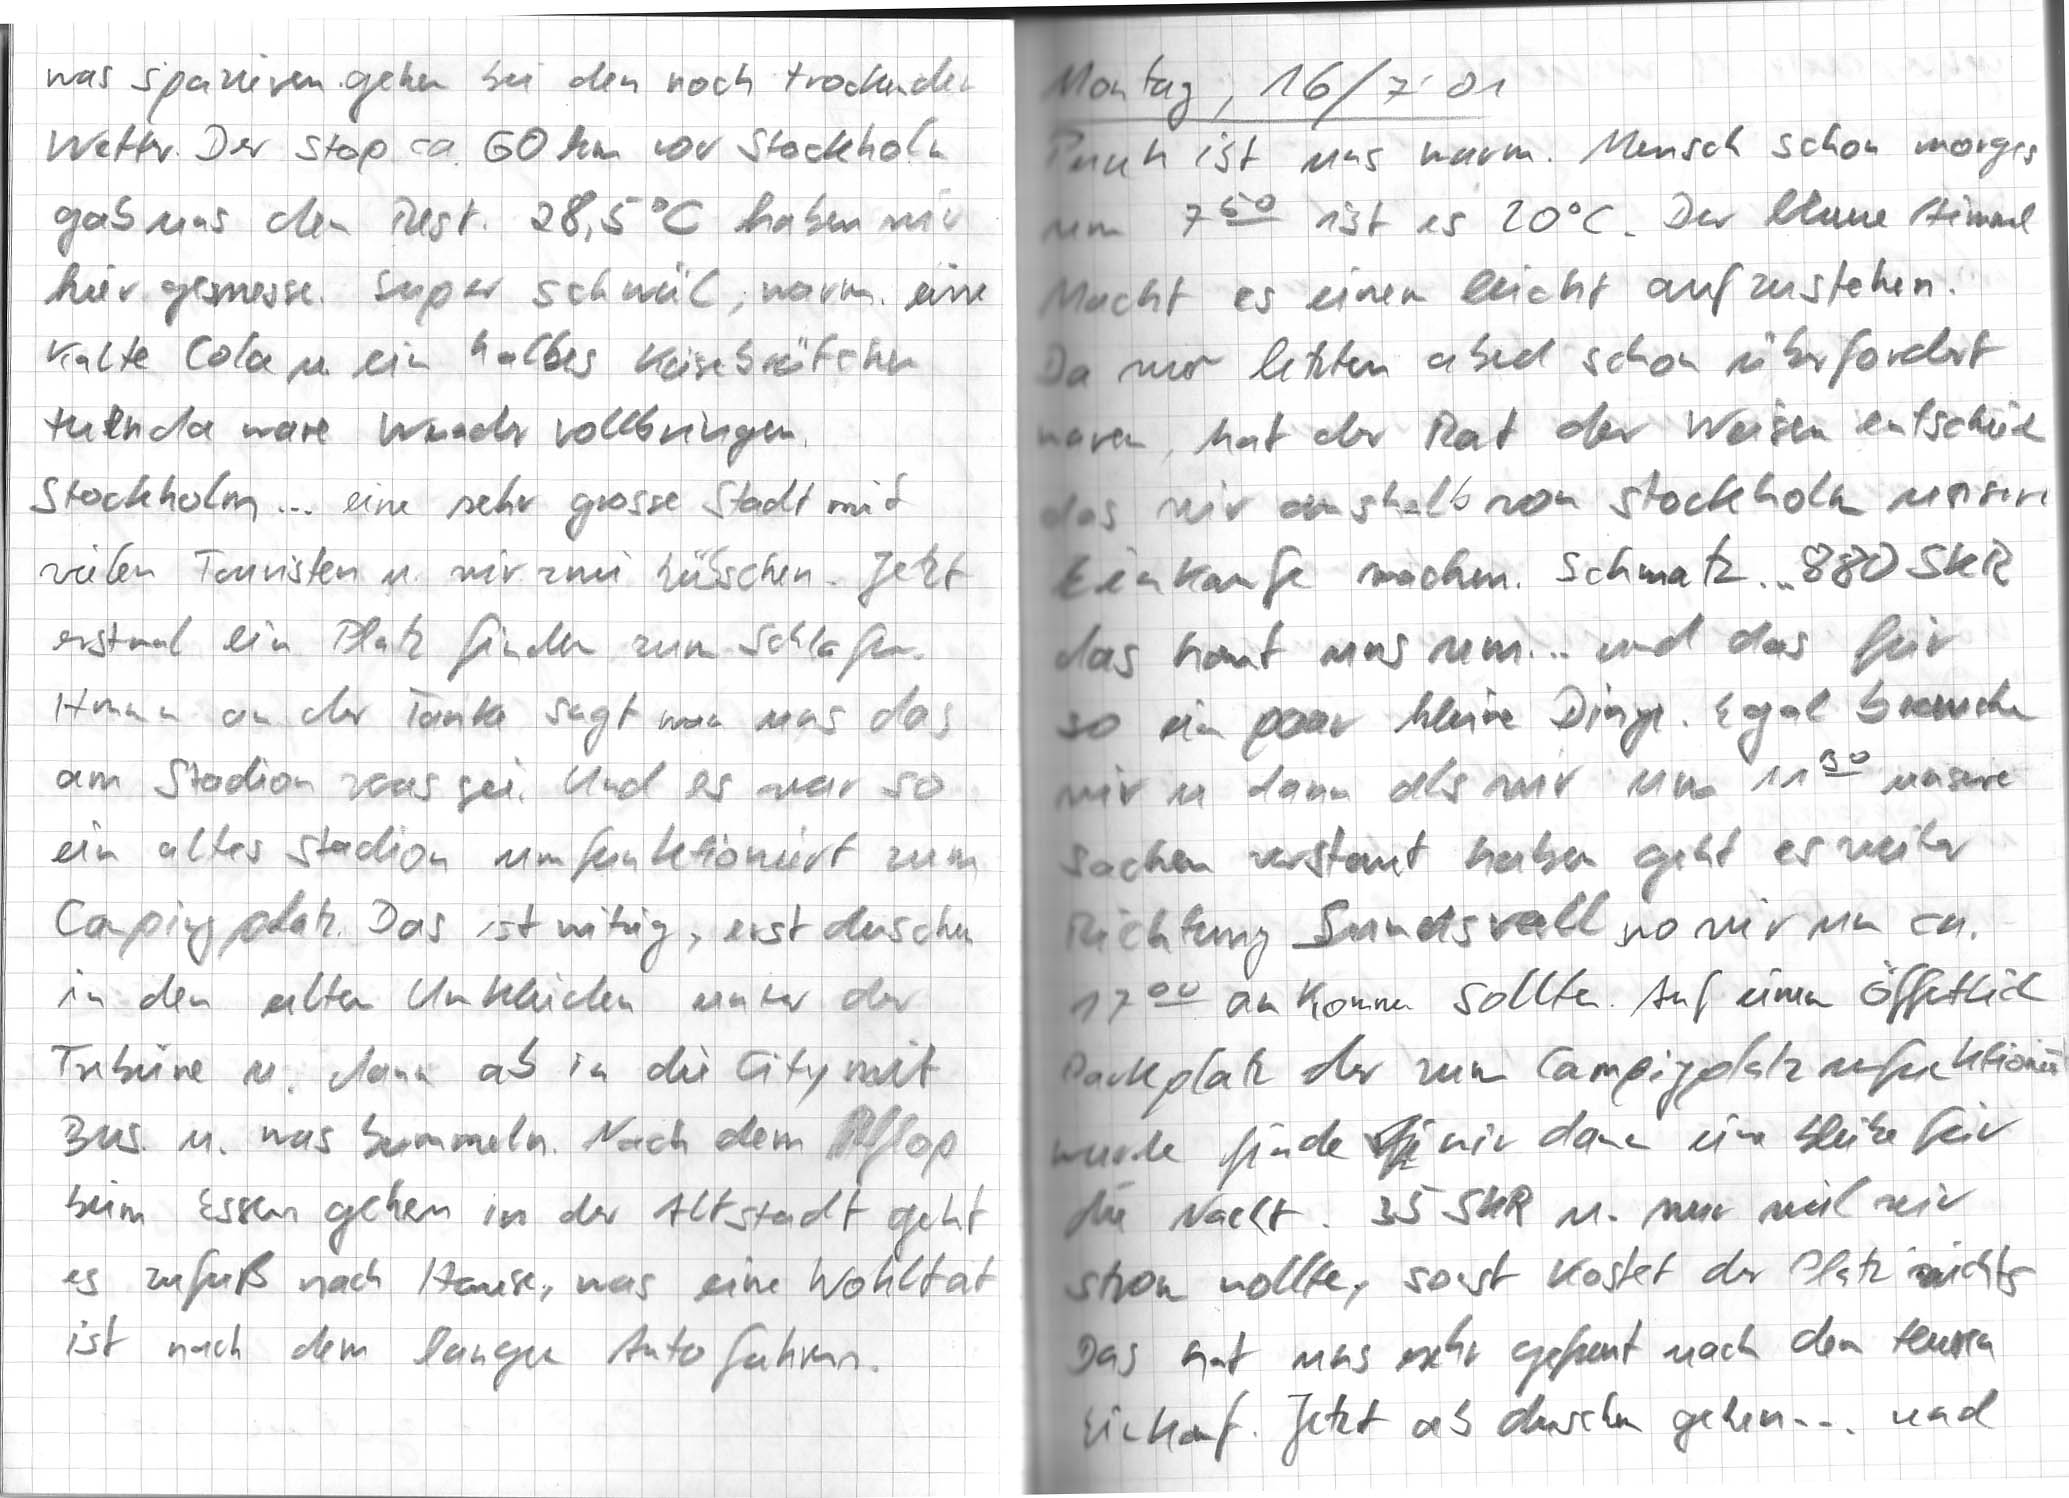 was spazieren gehen bei den noch trockenden
Wetter. Der Stop ca. 60 km vor Stockholm
gab uns den Rest. 28,5°C haben wir
hier gemesse. Super schwül, warm. eine
Kalte Cola u. ein halbes Käsebrötchen
die Wunder vollbringen.
Stockholm... eine sehr grosse Stadt mit
vielen Touristen u. wir zwei hübschen. Jetzt
erstmal ein Platz finden zum Schlafen.
Hmm an der Tanke sagt man uns das
am Stadion was sei. Und es war so
ein altes Stadion umfunktioniert zum
Campingplatz. Das ist witzig, erst duschen
in den alten Umkleiden unter der
Tribüne u. dann ab in die City mit
Bus. u. was bummeln. Nach dem Flop
beim Essen gehen in der Altstadt geht
es zufuß nach Hause, was eine Wohltat
ist nach dem langen Autofahren.
Montag, 16/7'01
Puuh ist uns warm. Mensch schon morges
um 7⁵⁰ ist es 20°C. Der blaue Himmel
Macht es einem leicht aufzustehen.
Da wir letzten abed schon überfordert
waren, hat der Rat der Weisen entschied
das wir aushalb von Stockholm unsere
Einkaufe machen. Schmatz... 880 SKR
das haut uns um... und das für
so ein paar kleine Dinge. Egal brauche
wir u dann als wir um 11³⁰ unsere
Sachen verstaut haben geht es weiter
Richtung Sundsvall wo wir um ca.
17⁰⁰ an Kommen sollten. Auf einem Öffetlich
Parkplatz der zum Campigplatz
wurde finde wir dann eine bleibe für
die Nacht. 35 SKR u. nur weil wir
strom wollte, sonst kostet der Platz nichts
Das hat uns sehr gefreut nach dem teuren
Einkauf. Jetzt ab duschen gehen... und